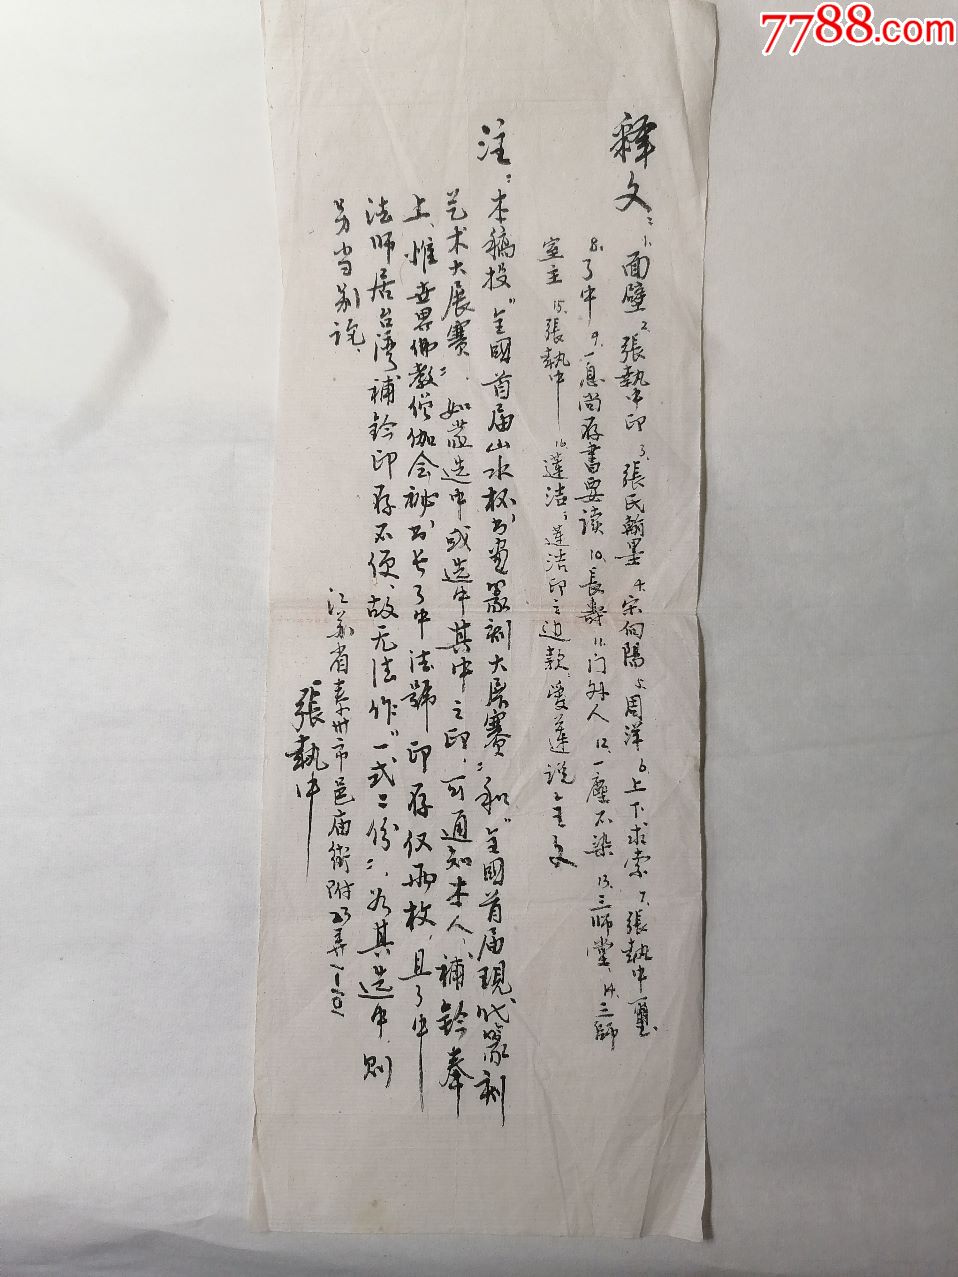 7788.com
释文：1、面壁2、張執中印3、張氏翰墨4、宋向陽5、周洋6、上下求索7、張執中璽
8、了中9、一息尚存書要读10、長壽11、门外人12、一塵不染13、三师堂、14、三師
室主15、張執中16、莲洁；莲洁印之边款：爱莲说全文
注：本稿投“全國首届山水杯书画篆刻大展赛”和“全國首届現代篆刻
艺术大展赛”。如蒙选中或选中其中之印，可通知本人，補鈐奉
上，惟世界佛教僧伽会秘书长了中法號印存仅兩枚，且了中
法师居台湾補鈐印存不便，故无法作“一式二份”，若其选中，则
另当别论。
江苏省泰州市邑庙街附
張執中